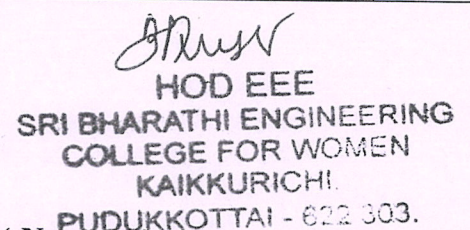 HOD EEE
SRI BHARATHI ENGINEERING
COLLEGE FOR WOMEN
KAIKKURICHI.
PUDUKKOTTAI - 622 303.